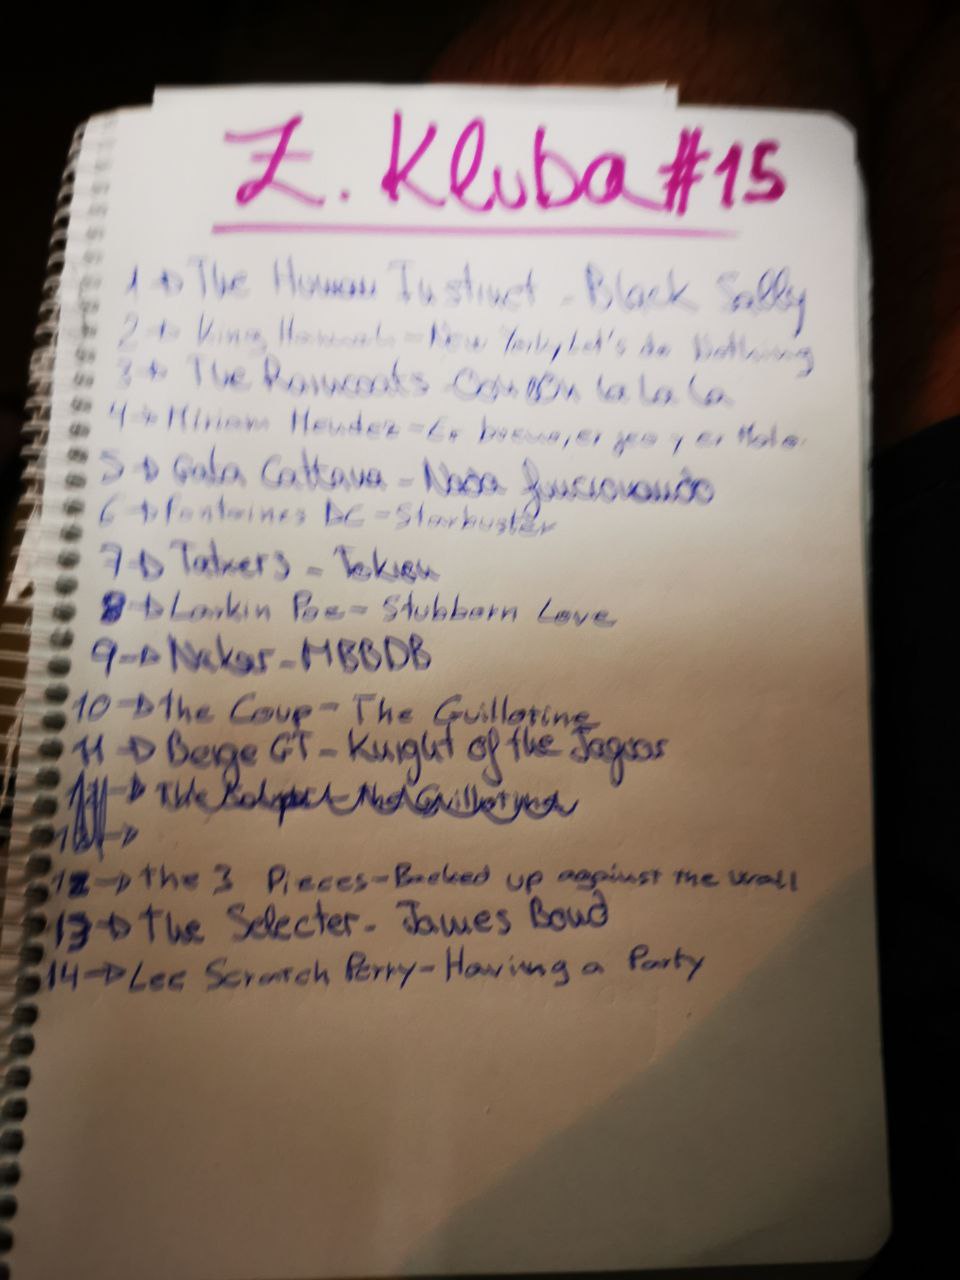 Z. Kluba #15
1 → The Human Instinct - Black Sally
2 → King Hannah - New York, Let's do Nothing
3 → The Raincoats - La La La
4 → Miriam Mendez - Er bueno, er feo y er Malo
5 → Gata Cattana - Nada funcionando
6 → Fontaines DC - Starbuster
7 → Talkers - Tokien
8 → Larkin Poe - Stubborn Love
9 → Nakar - MBBDB
10 → The Coup - The Guillotine
11 → Beige GT - Knight of the Jaguar
12 → The 3 Pieces - Backed up against the wall
13 → The Selecter - James Bond
14 → Lee Scratch Perry - Having a Party